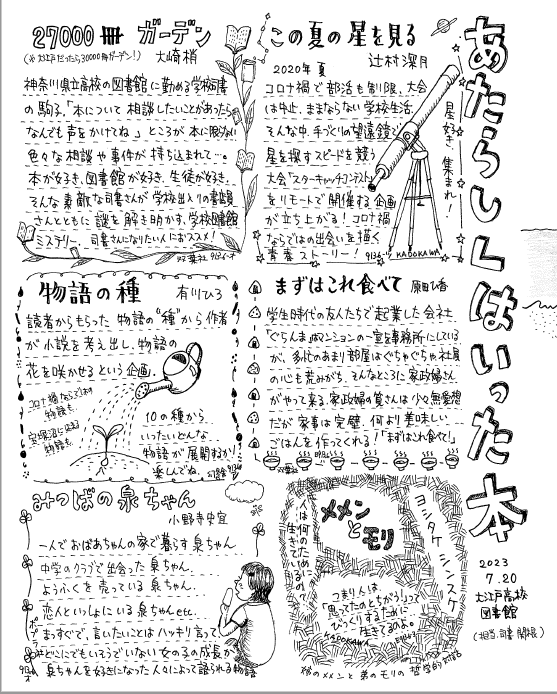 あたらしくはいった本
2023
7.20
大江戸高校
図書館
27000冊 ガーデン
大崎梢
神奈川県立高校の図書館に勤める学校司書
の駒子。「本について相談したいことがあったら
なんでも声をかけてね。」ところが本に限らない
色々な相談や事件が持ち込まれて…。
本が好き、図書館が好き、生徒が好き。
そんな素敵な司書さんが学校出入りの書店員
さんとともに謎を解き明かす、学校図書館
ミステリー。司書さんになりたい人におススメ!
双葉社
この夏の星を見る
辻村深月
2020年 夏
コロナ禍で部活も制限、大会
は中止、ままならない学校生活。
そんな中、手づくりの望遠鏡で
星を探すスピードを競う
大会「スターキャッチコンテスト」
をリモートで開催する企画
が立ち上がる!コロナ禍
ならではの出会いを描く
青春ストーリー!
KADOKAWA
星好き集まれ!
物語の種
有川ひろ
読者からもらった物語の“種”から作者
が小説を考え出し、物語の
花を咲かせるという企画。
コロナ禍ならではの
物語も。
宝塚沼による
物語も。
10の種から
いったいどんな
物語が展開するか
楽しんでね。
幻冬舎
まずはこれ食べて
原田ひ香
学生時代の友人たちで起業した会社
「ぐらんま」。マンションの一室を事務所にしている
が、多忙のあまり部屋はぐちゃぐちゃ、社員
の心も荒みがち。そんなところに家政婦さん
がやって来る。家政婦の筧さんは少々無愛想
だが家事は完璧、何より美味しい
ごはんを作ってくれる!「まずはこれ食べて」
双葉社
みつばの泉ちゃん
小野寺史宜
一人でおばあちゃんの家で暮らす泉ちゃん
中学のクラブで出会った泉ちゃん。
ようふくを売っている泉ちゃん。
恋人といっしょにいる泉ちゃんetc.
まっすぐで、言いたいことはハッキリ言って、
どこにでもいそうでいない女の子の成長が
泉ちゃんを好きになった人々によって語られる物語
ポプラ社
メメンとモリ
ヨシタケシンスケ
人は何のために
生きているの?
つまり人は
「思ってたのとちがう!」って
びっくりするために
生きてるのよ。
KADOKAWA
姉のメメンと弟のモリの哲学的対話